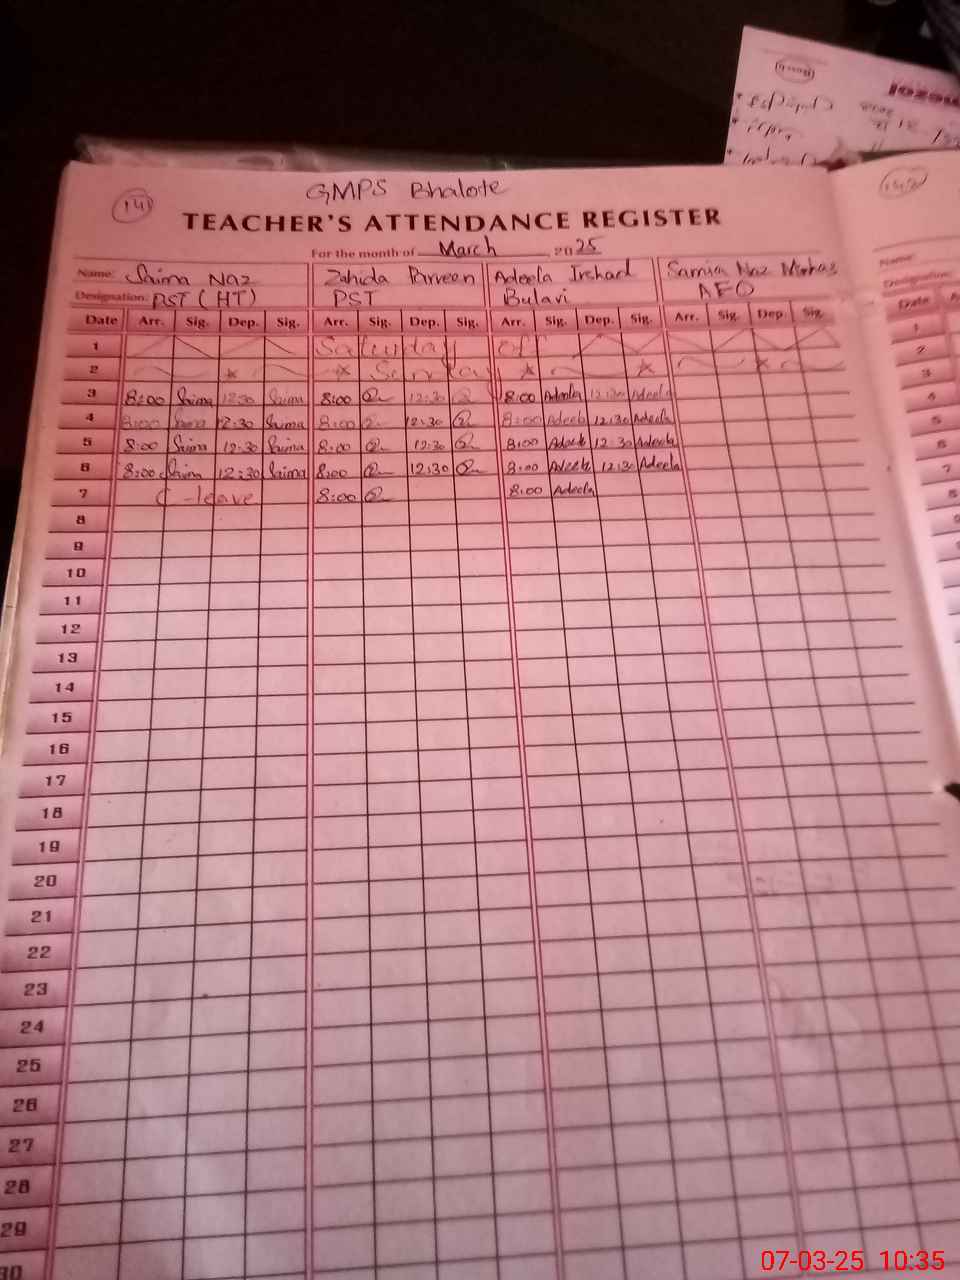 GMPS Bhalote
141
TEACHER'S ATTENDANCE REGISTER
For the month of March, 2025
Name: Saima Naz Zahida Parveen Adeela Irshad Samia Naz Minhas
Designation: PST (HT) PST Bulavi AEO
Date Arr. Sig. Dep. Sig. Arr. Sig. Dep. Sig. Arr. Sig. Dep. Sig. Arr. Sig. Dep. Sig.
1 Saturday off
2 Sunday
3 8:00 Saima 12:30 Saima 8:00 12:30 8:00 Adeela 12:30 Adeela
4 8:00 Saima 12:30 Saima 8:00 12:30 8:00 Adeela 12:30 Adeela
5 8:00 Saima 12:30 Saima 8:00 12:30 8:00 Adeela 12:30 Adeela
6 8:00 Saima 12:30 Saima 8:00 12:30 8:00 Adeela 12:30 Adeela
7 C-leave 8:00 8:00 Adeela
8
9
10
11
12
13
14
15
16
17
18
19
20
21
22
23
24
25
26
27
28
29
30
142
Name:
Designation:
Date
1
2
3
4
5
6
7
8
07-03-25 10:35